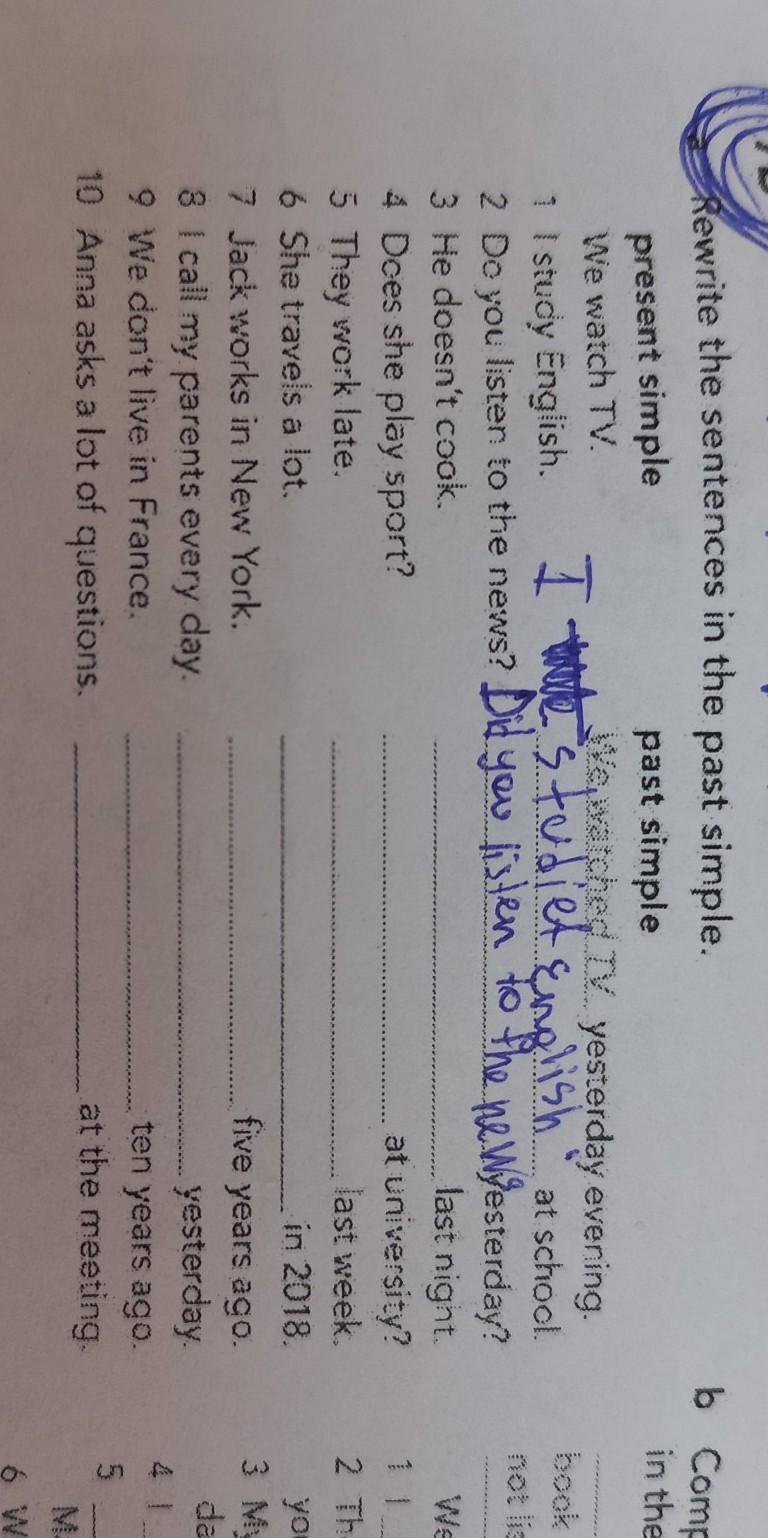 a Rewrite the sentences in the past simple.
present simple past simple
We watch TV. We watched TV yesterday evening.
1 I study English. I studiet English at school.
2 Do you listen to the news? Did you listen to the news yesterday?
3 He doesn't cook. last night.
4 Does she play sport? at university?
5 They work late. last week.
6 She travels a lot. in 2018.
7 Jack works in New York. five years ago.
8 I call my parents every day. yesterday.
9 We don't live in France. ten years ago.
10 Anna asks a lot of questions. at the meeting.
b Comp
in the
book
not lis
We
1 I
2 Th
you
3 My
da
4 I
5
Ma
6 W